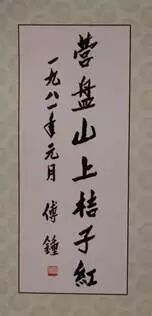 营盘山上桔子紅
一九八一年元月
傅鐘